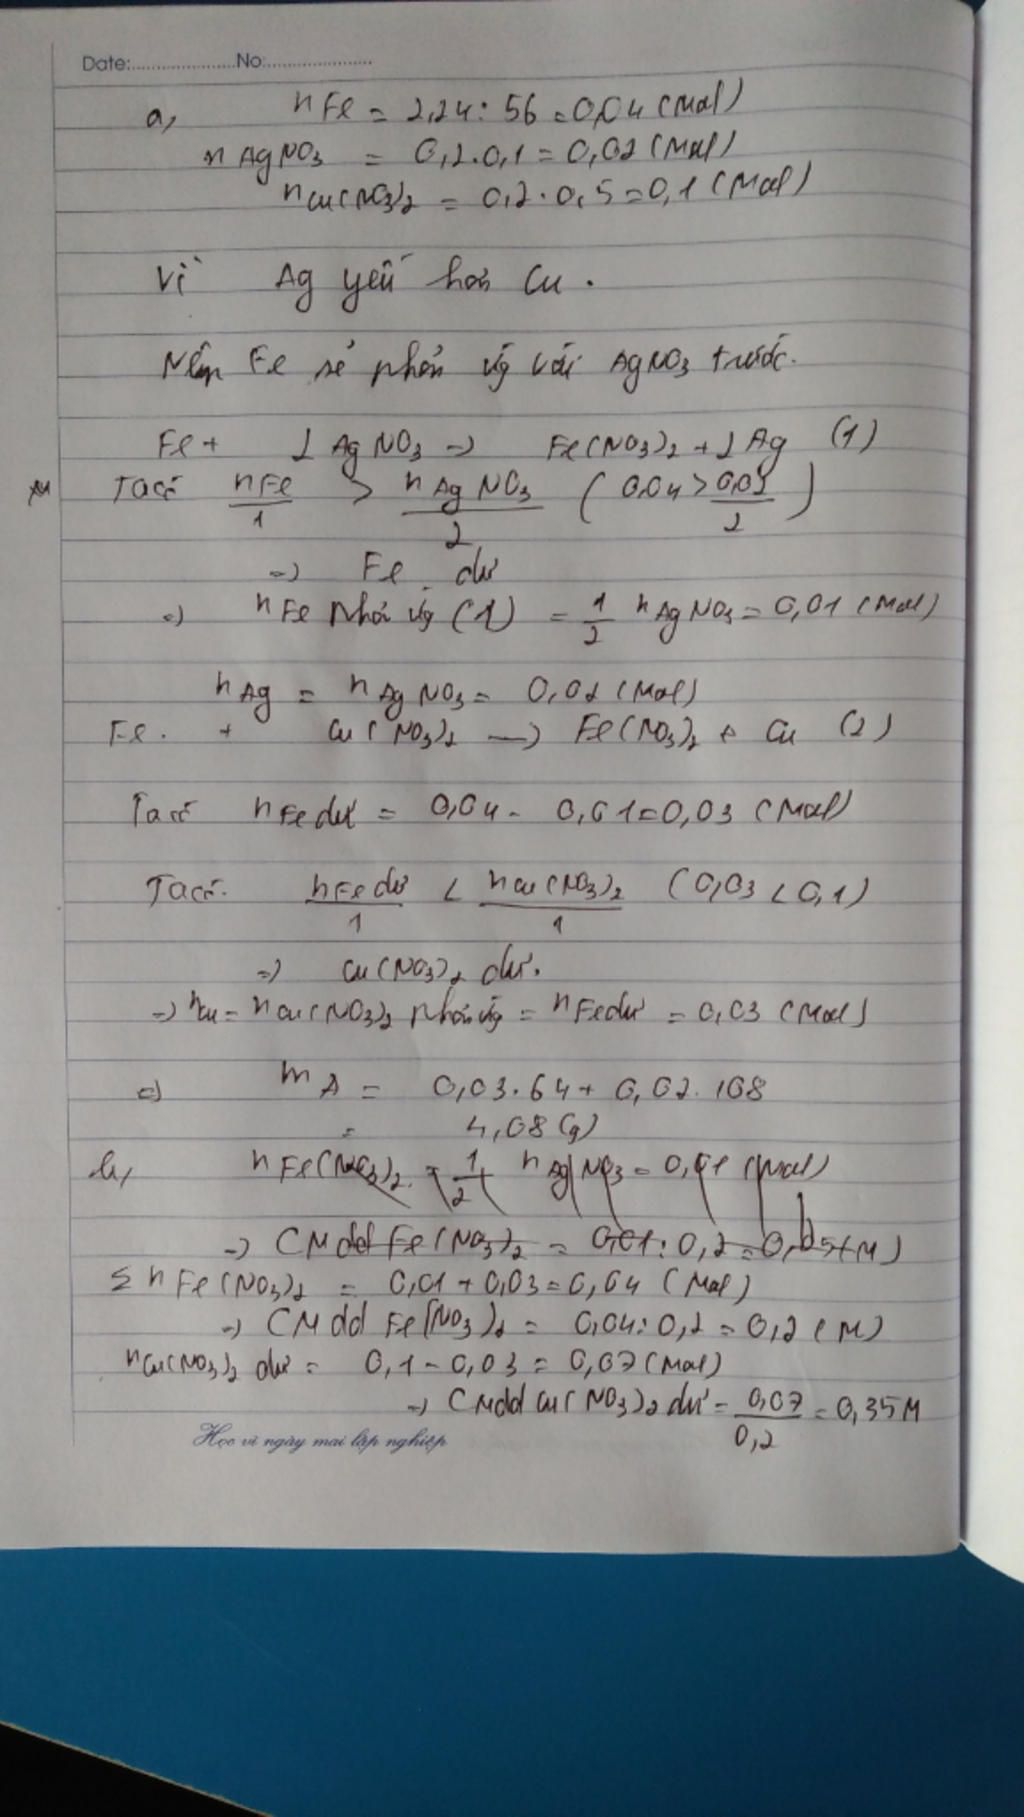 Date:....................No:.....................
a, nFe = 2,24 : 56 = 0,04 (Mol)
nAgNO3 = 0,2.0,1 = 0,02 (Mol)
nCu(NO3)2 = 0,2.0,5 = 0,1 (Mol)
Vì Ag yếu hơn Cu.
Nên Fe sẽ phản ứg với AgNO3 trước.
Fe + 2AgNO3 -> Fe(NO3)2 + 2Ag (1)
Ta có nFe/1 > nAgNO3/2 (0,04 > 0,02/2)
=> Fe dư
=> nFe phản ứg (1) = 1/2 nAgNO3 = 0,01 (Mol)
nAg = nAgNO3 = 0,02 (Mol)
Fe + Cu(NO3)2 -> Fe(NO3)2 + Cu (2)
Ta có nFe dư = 0,04 - 0,01 = 0,03 (Mol)
Ta có. nFe dư/1 < nCu(NO3)2/1 (0,03 < 0,1)
=> Cu(NO3)2 dư.
=> nCu = nCu(NO3)2 phản ứg = nFe dư = 0,03 (Mol)
=> mA = 0,03.64 + 0,02.108
= 4,08 (g)
b, nFe(NO3)2 = 1/2 nAgNO3 = 0,01 (Mol)
=> CM dd Fe(NO3)2 = 0,01 : 0,2 = 0,05 (M)
Σ nFe(NO3)2 = 0,01 + 0,03 = 0,04 (Mol)
=> CM dd Fe(NO3)2 = 0,04 : 0,2 = 0,2 (M)
nCu(NO3)2 dư = 0,1 - 0,03 = 0,07 (Mol)
=> CM dd Cu(NO3)2 dư = 0,07/0,2 = 0,35M
Học vì ngày mai lập nghiệp